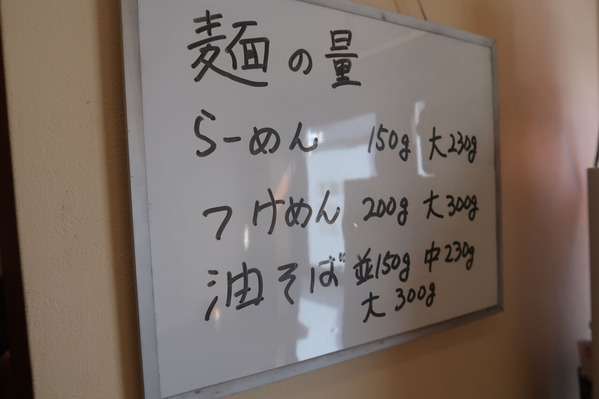 麺の量
らーめん 150g 大230g
つけめん 200g 大300g
油そば 並150g 中230g
大 300g